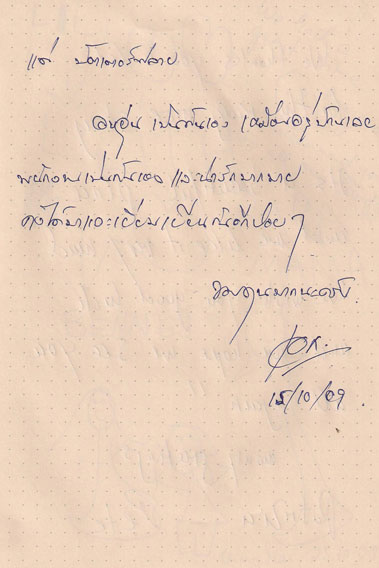 แด่ บัตเตอร์ฟลาย
อบอุ่น เป็นกันเอง เหมือนอยู่บ้านเลย
พนักงานเป็นกันเอง และน่ารักมากมาย
คงได้มาแวะเยี่ยมเยียนกันอีกบ่อยๆ
ขอบคุณมากนะครับ
15/10/09